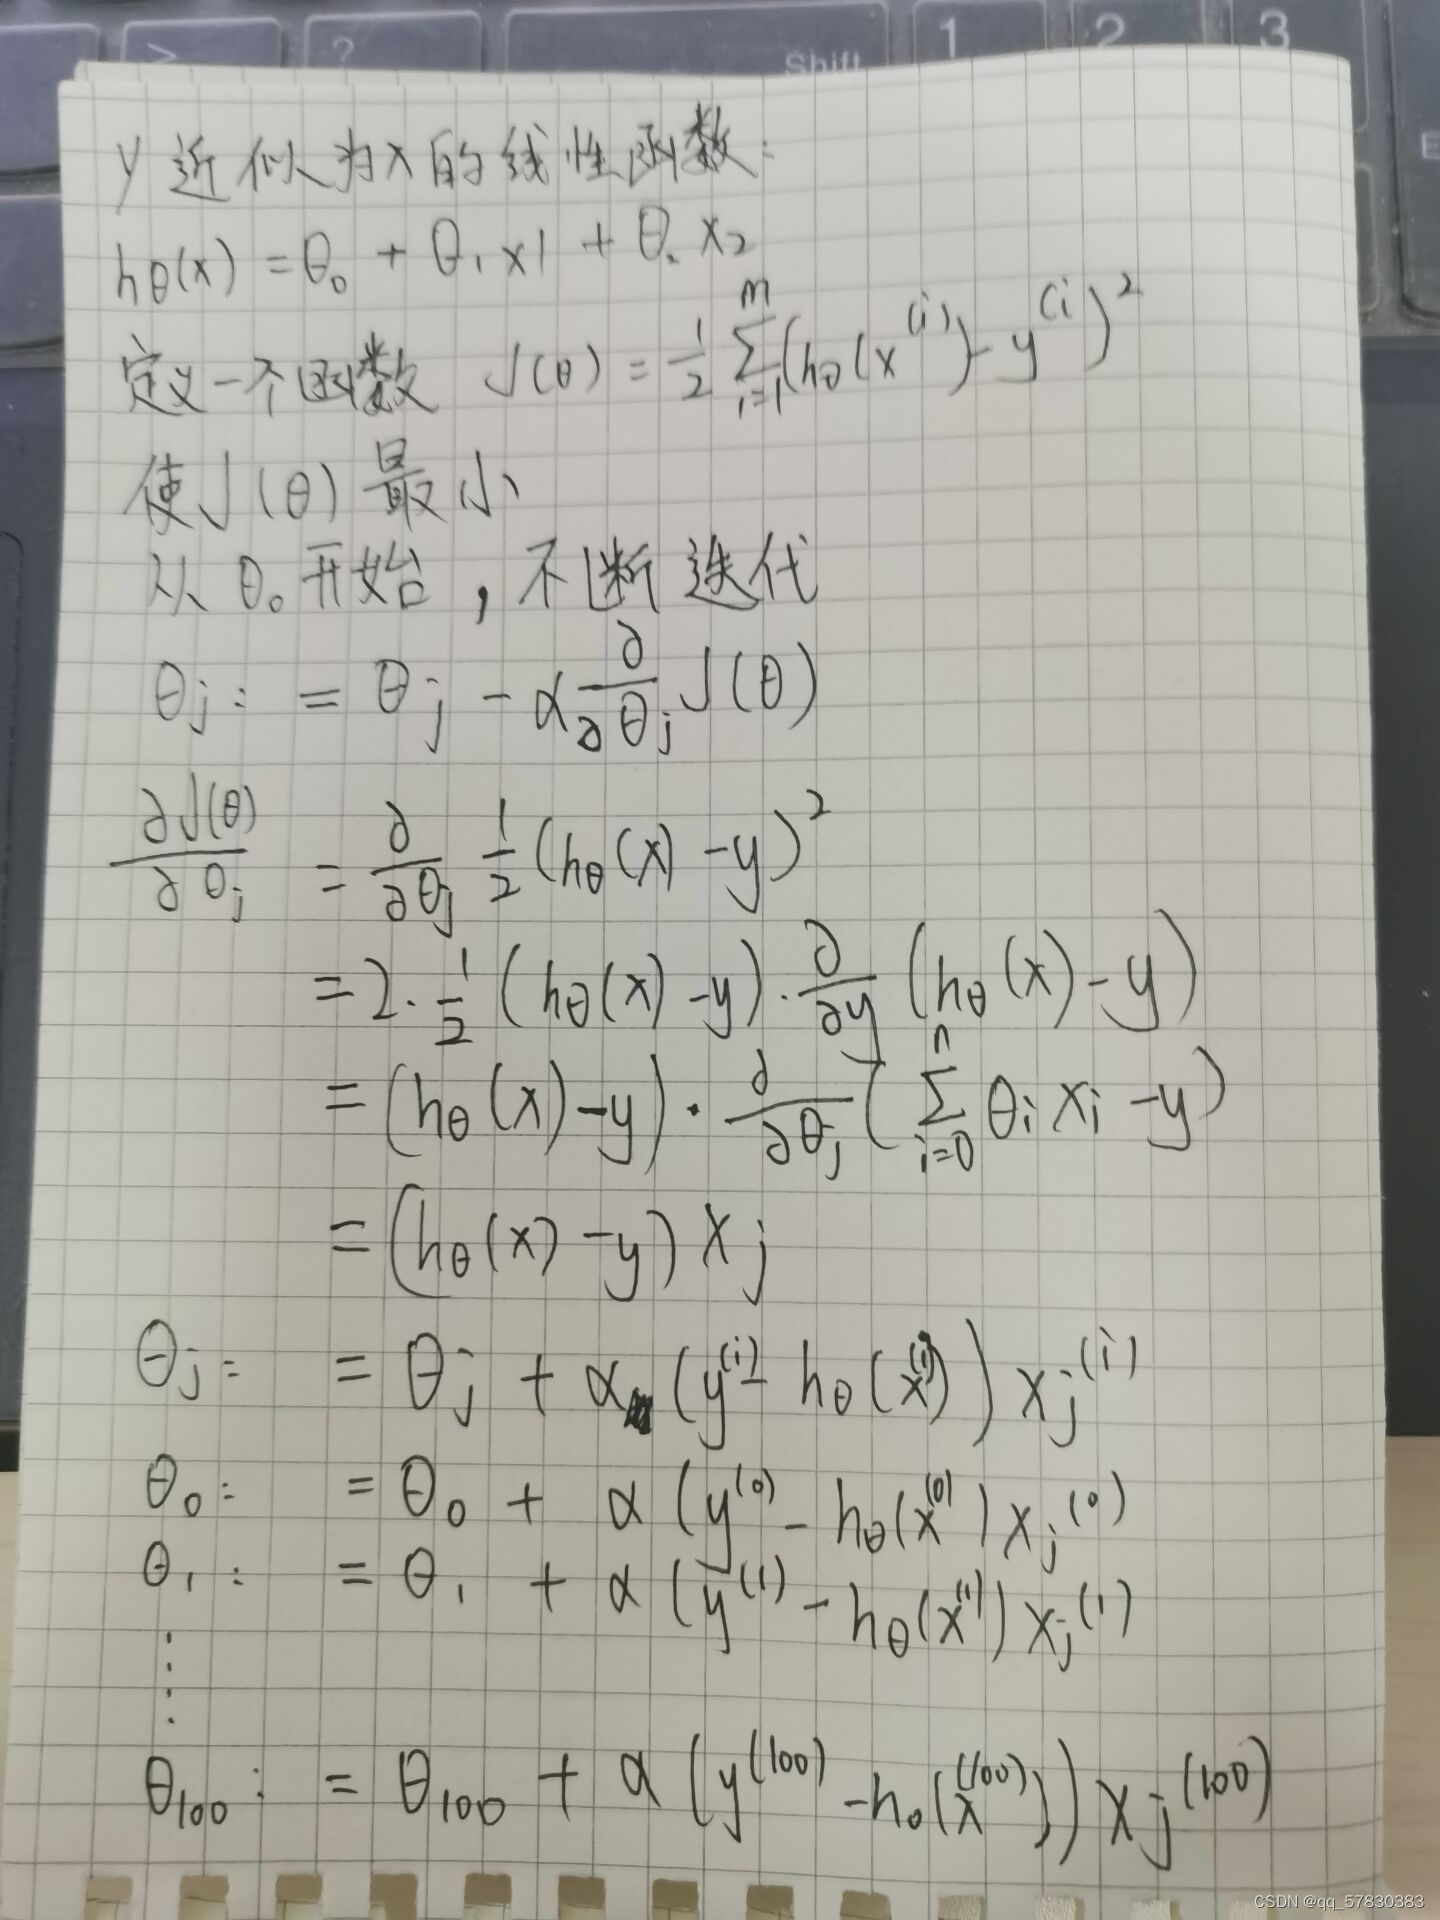 > ? Shift 1 2 3
E
y近似为x的线性函数:
hθ(x) = θ₀ + θ₁x1 + θ. x₂
定义一个函数 J(θ) = 1/2 ∑_{i=1}^{m} (hθ(x^(i)) - y^(i))²
使J(θ)最小
从θ₀开始,不断迭代
θj: = θj - α ∂/∂θj J(θ)
∂J(θ)/∂θj = ∂/∂θj 1/2 (hθ(x) - y)²
= 2·1/2 (hθ(x) - y)·∂/∂y (hθ(x) - y)
= (hθ(x) - y)·∂/∂θj (∑_{i=0}^{n} θi xi - y)
= (hθ(x) - y) xj
θj: = θj + α (y^(i) - hθ(x^(i))) xj^(i)
θ₀: = θ₀ + α (y^(0) - hθ(x^(0)) xj^(0)
θ₁: = θ₁ + α (y^(1) - hθ(x^(1)) xj^(1)
θ₁₀₀: = θ₁₀₀ + α (y^(100) - hθ(x^(100))) xj^(100)
CSDN @qq_57830383